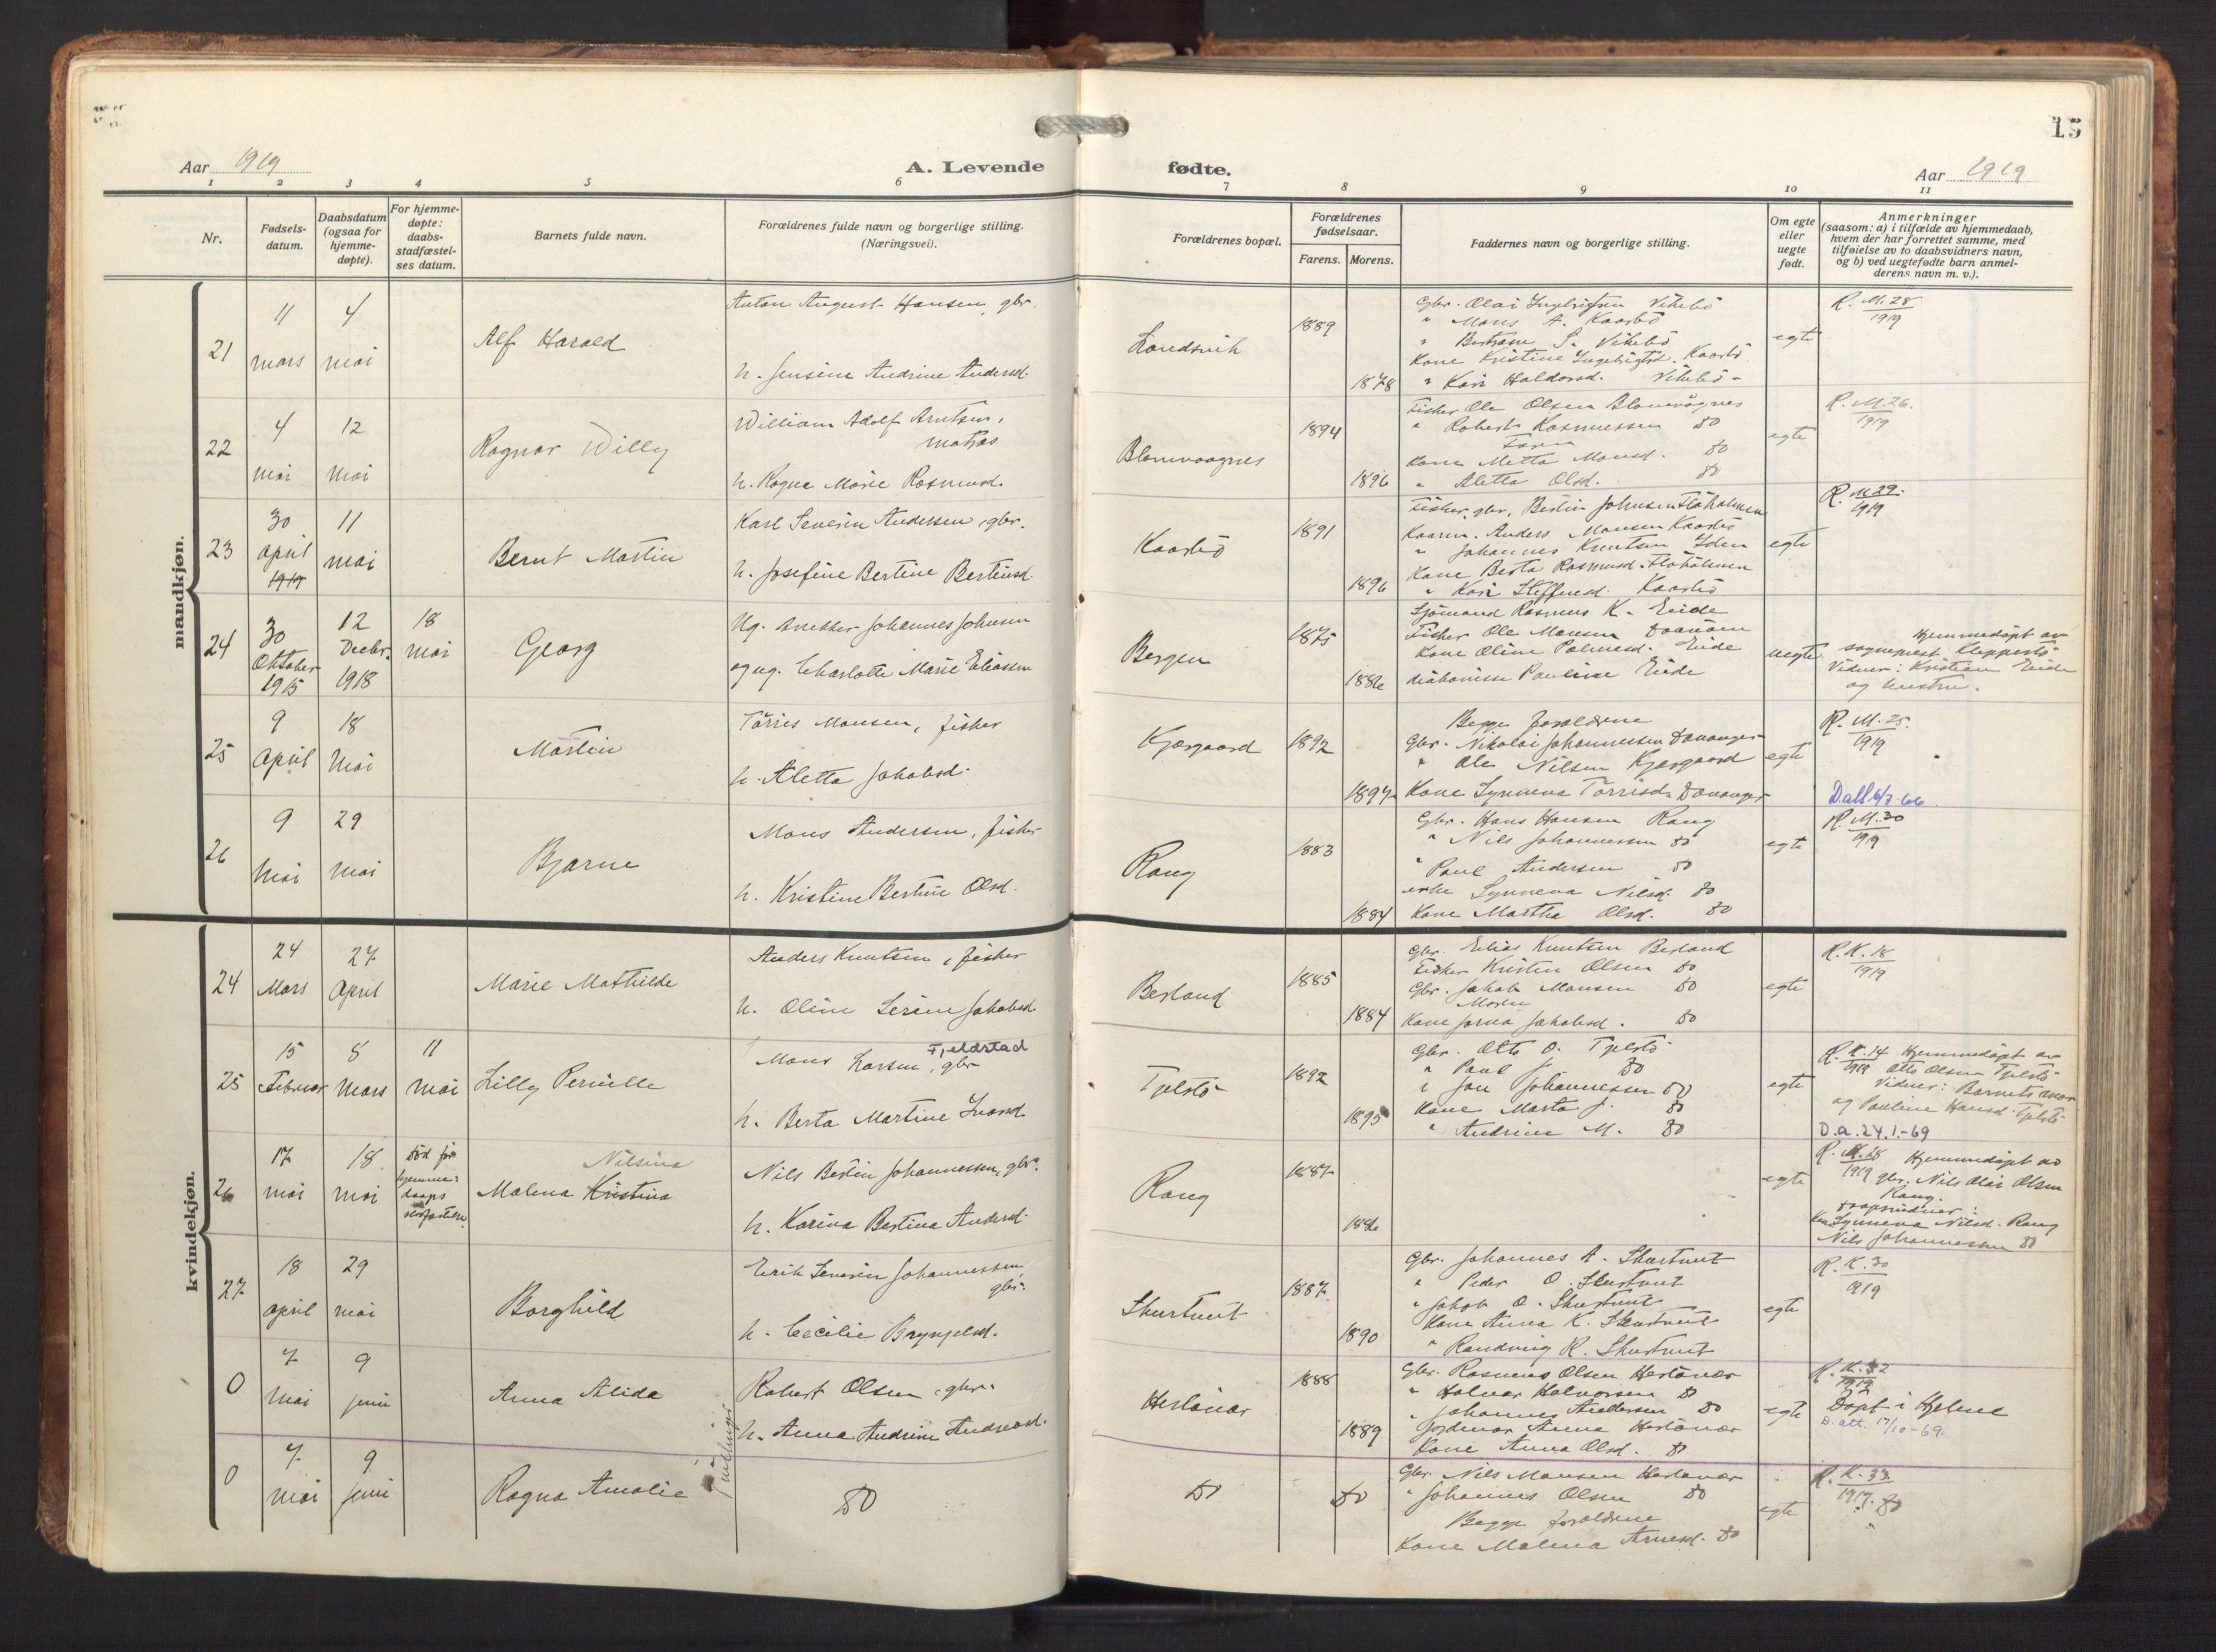 15
Aar 1919
A. Levende
fødte.
Aar 1919
1 2 3 4 5 6 7 8 9 10 11
Nr.
Fødsels-
datum.
Daabsdatum
(ogsaa for
hjemme-
døpte).
For hjemme-
døpte:
daabs-
stadfæstel-
ses datum.
Barnets fulde navn.
Forældrenes fulde navn og borgerlige stilling.
(Næringsvei).
Forældrenes bopæl.
Forældrenes
fødselsaar.
Farens. Morens.
Faddernes navn og borgerlige stilling.
Om egte
eller
uegte
født.
Anmerkninger
(saasom: a) i tilfælde av hjemmedaab,
hvem der har forrettet samme, med
tilføielse av to daabsvidners navn,
og b) ved uegtefødte barn anmel-
derens navn m. v.).
mandkjøn.
21
11
mars
4
mai
Alf Harald
Anton August Hansen, gbr.
h. Jensine Andrine Andersd.
Landsvik
1889
1878
Gbr. Olai Ingebrigtsen Vikebø
" Mons A. Kaarbø
" Bertram S. Vikebø
Kone Kristine Ingebrigtsd. Kaarbø
" Kari Haldorsd. Vikebø
egte
R. M. 28
1919
22
4
mai
12
mai
Ragnar Willy
William Adolf Arntsen,
matros
h. Ragna Marie Rasmusd.
Blomvaagnes
1894
1896
Fisker Ole Olsen Blomvågnes
" Robert Rasmussen do
Faren
Kone Metta Monsd. do
" Aletta Olsd. do
egte
R. M. 26.
1919
23
30
april
1919
11
mai
Bernt Martin
Karl Severin Andersen, gbr.
h. Josefine Bertine Bertinsd.
Kaarbø
1891
1896
Fisker, gbr. Bertin Johnsen Flåholmen
Kaarm. Anders Monsen Kaarbø
" Johannes Knutsen Yden
Kone Berta Rasmusd. Flåholmen
" Kari Steffensd. Kaarbø
egte
R. M 29.
1919
24
30
Oktober
1915
12
Decbr.
1918
18
mai
Georg
Ug. snekker Johannes Johnsen
og ug. Charlotte Marie Eliassen
Bergen
1875
1886
Sjømand Rasmus K. Eide
Fisker Ole Monsen
Kone Oline Palmesd. Eide
diakonisse Pauline Eide
uegte
Hjemmedøpt av
sogneprest Kleppestø
Vidner: Kristian Eide
og hustru.
25
9
April
18
Mai
Martin
Tørris Monsen, fisker
h. Aletta Jakobsd.
Kjærgaard
1892
1897
Begge forældrene
Gbr. Nikolai Johannessen Davanger
" Ole Nilsen Kjærgaard
Kone Synneva Tørrisd. Davanger
egte
R. M. 25.
1919
D.att 6/7-66
26
9
Mai
29
mai
Bjarne
Mons Andersen, fisker
h. Kristine Bertine Olsd.
Rong
1883
1884
Gbr. Hans Hansen Rong
" Nils Johannessen do
" Paul Andersen do
enke Synneva Nilsd. do
Kone Martha Olsd. do
egte
R. M. 30
1919
kvindekjøn.
24
24
Mars
27
April
Marie Mathilde
Anders Knutsen, fisker
h. Oline Serine Jakobsd.
Berland
1885
1884
Gbr. Elias Knutsen Berland
Fisker Kristen Olsen do
Gbr. Jakob Monsen do
Moren
Kone Jorina Jakobsd. do
egte
R. K. 18
1919
25
15
Februar
8
Mars
11
mai
Lilly Pernille
Fjeldstad
Mons Larsen, gbr
h. Berta Martine Ivarsd.
Tjelstø
1892
1895
Gbr. Otto O. Tjelstø
" Paul J. do
" Jon Johannessen do
Kone Marta J. do
" Andrine M. do
egte
R. K. 14 Hjemmedøpt av
1919 Otto Olsen Tjelstø
Vidner: Barnets mor
og Pauline Hansd. Tjelstø
D.a. 24.1.-69
26
17
mai
18
mai
Død før
hjemme-
daaps
stadfæstelse
Nilsina
Malena Kristina
Nils Bertin Johannessen, gbr.
h. Karina Bertina Andersd.
Rong
1887
1886
egte
Hjemmedøpt av
1919 gbr. Nils Olai Olsen
Rong.
Daapsvidner:
Synneva Nilsd. Rong
Nils Johannessen do
27
18
april
29
mai
Borghild
Erik Severin Johannessen
gbr.
h. Cecilie Brynjelsd.
Skurtveit
1887
1890
Gbr. Johannes A. Skurtveit
" Peder O. Skurtveit
" Jakob O. Skurtveit
Kone Anna K. Skurtveit
" Randveig R. Skurtveit
egte
R. K. 30
1919
0
7
Mai
9
juni
Anna Alida
Robert Olsen, gbr.
h. Anna Andrine Andreasd.
Herløvær
1888
1889
Gbr. Rasmus Olsen Herløvær
" Halvar Halvorsen do
" Johannes Andersen do
Jordmor Anna Herløvær
Kone Anna Olsd. do
egte
R. K. 32
1919
Døpt i Hjelme
D. att. 17/10-69.
0
7
mai
9
juni
Ragna Amalie
Tvillinger
do
do
do
Gbr. Nils Monsen Herløvær
" Johannes Olsen do
Begge forældrene
Kone Malena Arnesd. do
egte
R. K. 33
1919. do